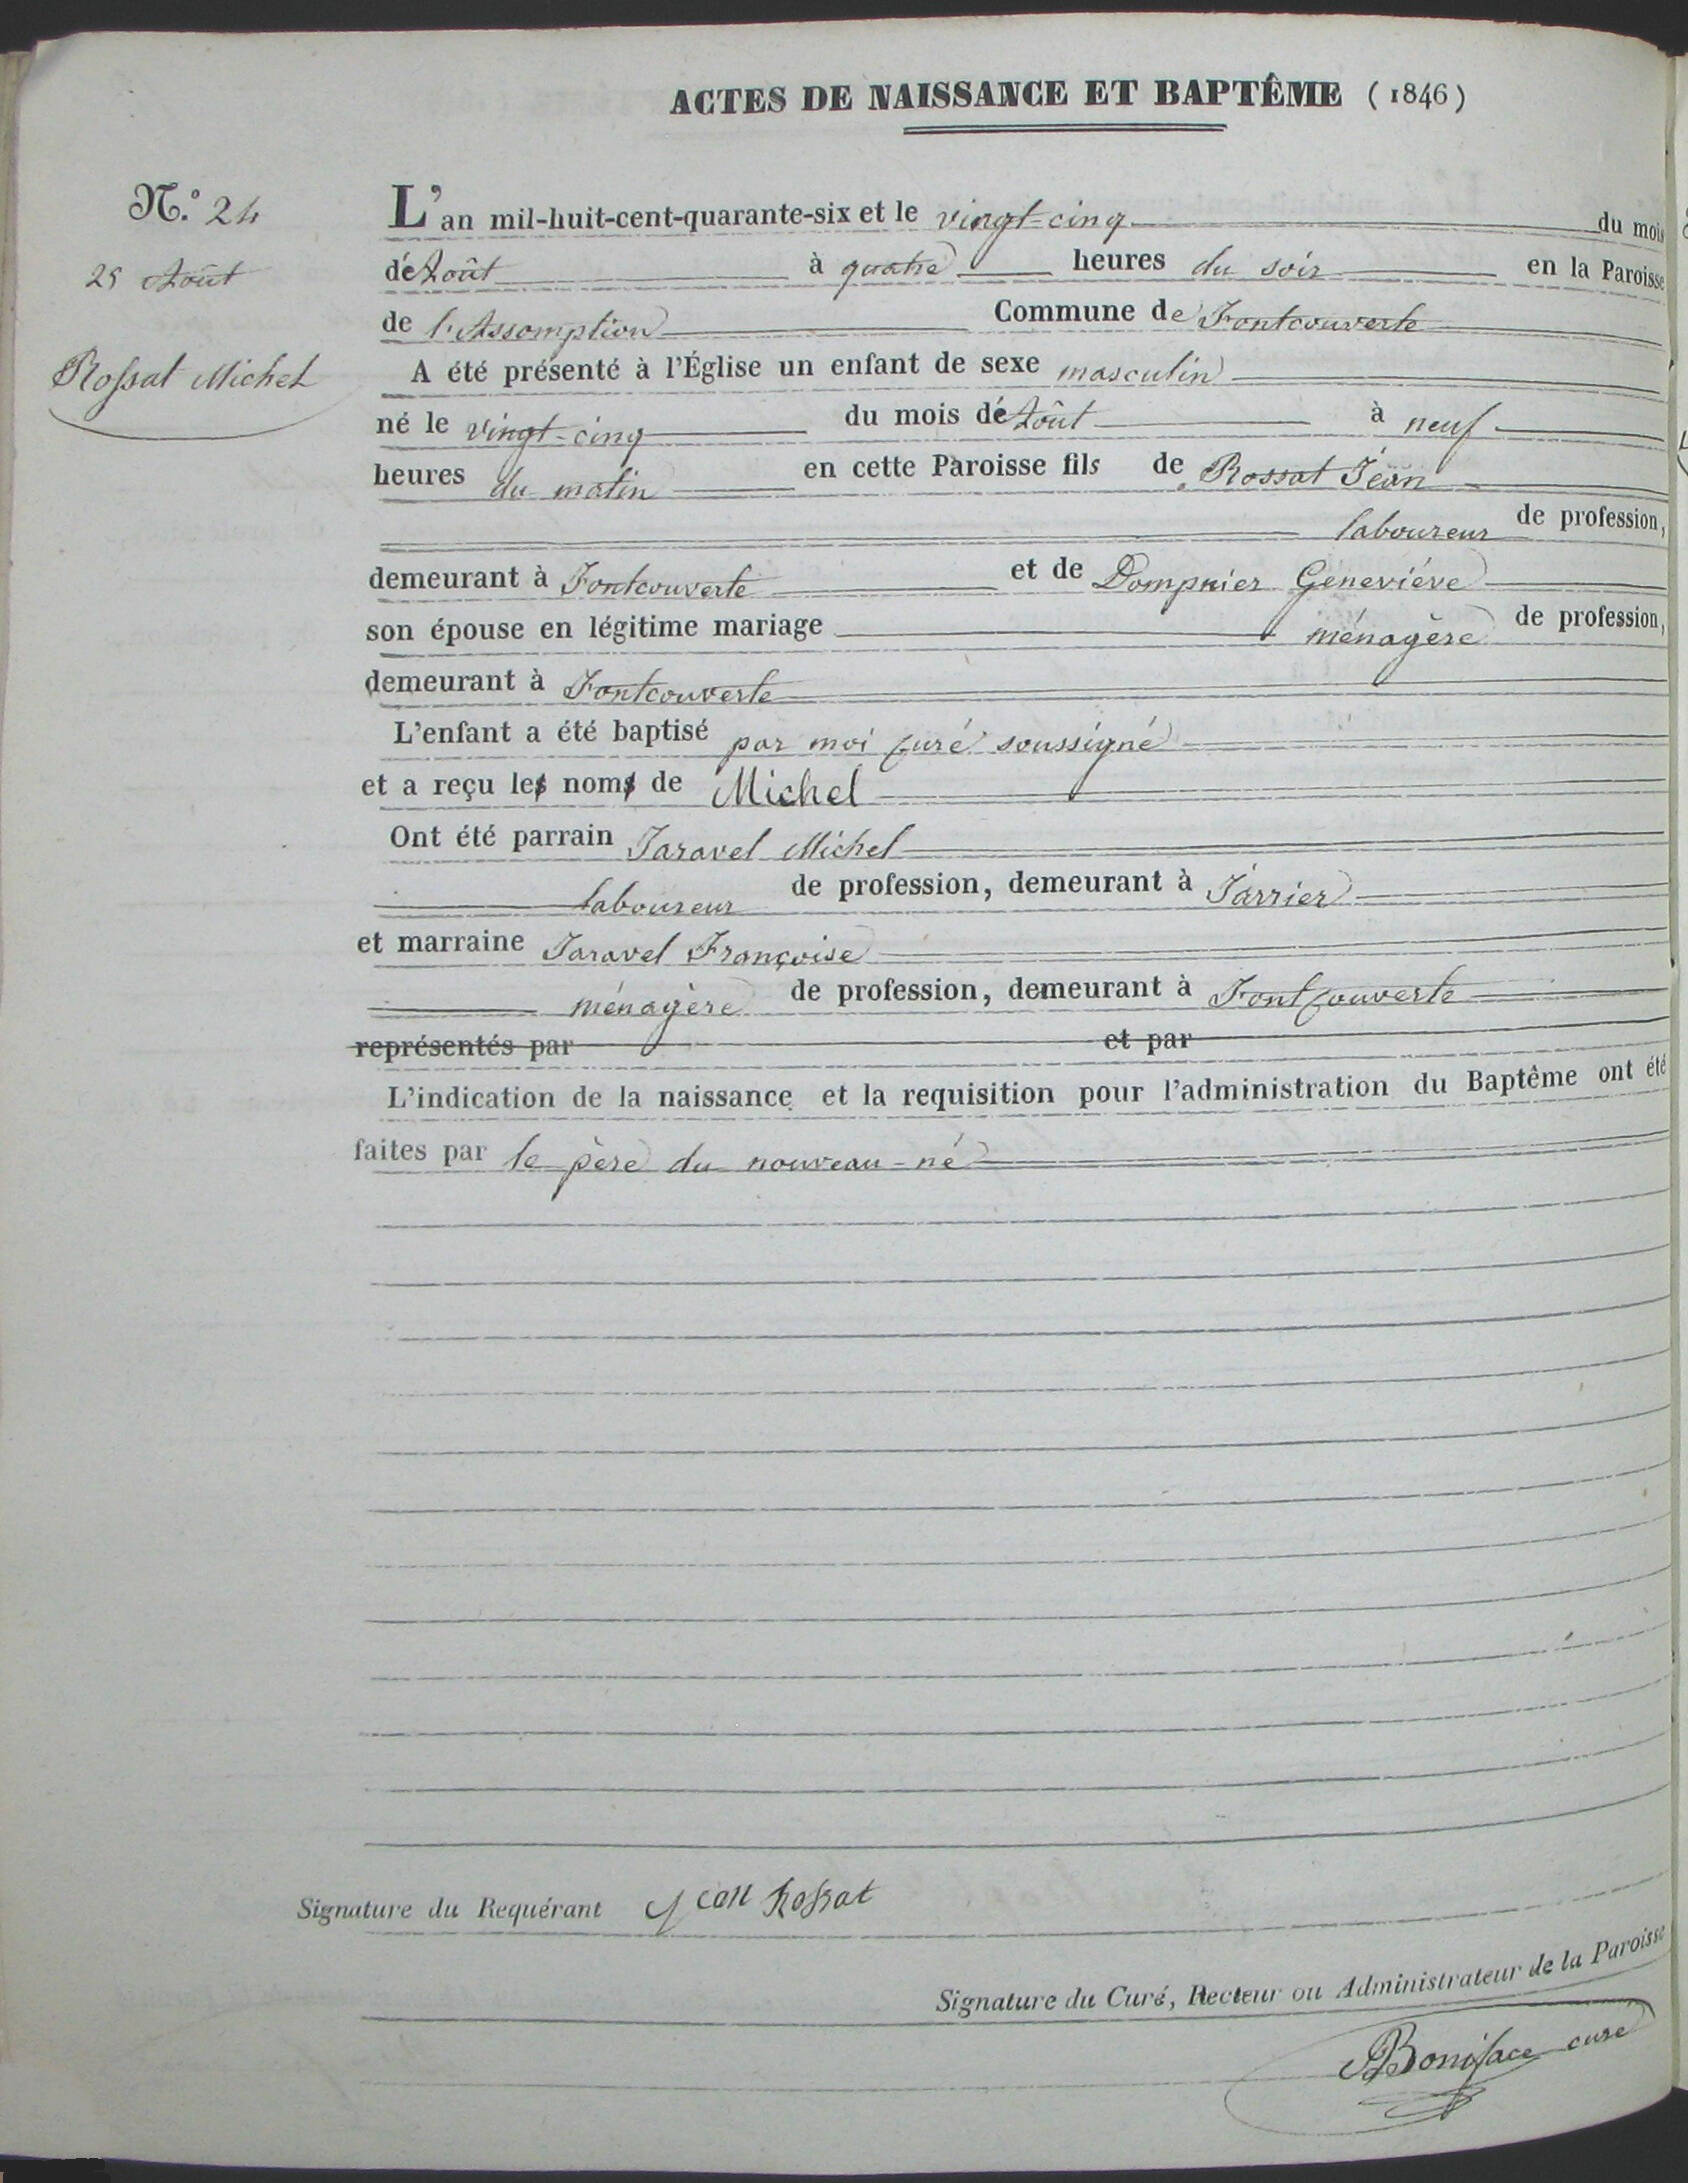 ACTES DE NAISSANCE ET BAPTÊME (1846)
N.° 24
25 Août
Rossat Michel
L'an mil-huit-cent-quarante-six et le vingt-cinq du mois
de Août à quatre heures du soir en la Paroisse
de l'Assomption Commune de Fontcouverte
A été présenté à l'Église un enfant de sexe masculin
né le vingt-cinq du mois de Août à neuf
heures du matin en cette Paroisse fils de Rossat Jean
laboureur de profession,
demeurant à Fontcouverte et de Dompnier Geneviéve
son épouse en légitime mariage ménagère de profession,
demeurant à Fontcouverte
L'enfant a été baptisé par moi curé soussigné
et a reçu les noms de Michel
Ont été parrain Jaravel Michel
laboureur de profession, demeurant à Jarrier
et marraine Jaravel Françoise
ménagère de profession, demeurant à Fontcouverte
représentés par et par
L'indication de la naissance et la requisition pour l'administration du Baptême ont été
faites par le père du nouveau-né
Signature du Requérant Jean Rossat
Signature du Curé, Recteur ou Administrateur de la Paroisse
Boniface curé